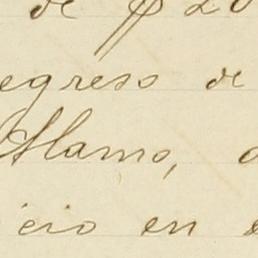 de $ 20
egreso de
Alamo,
icio en